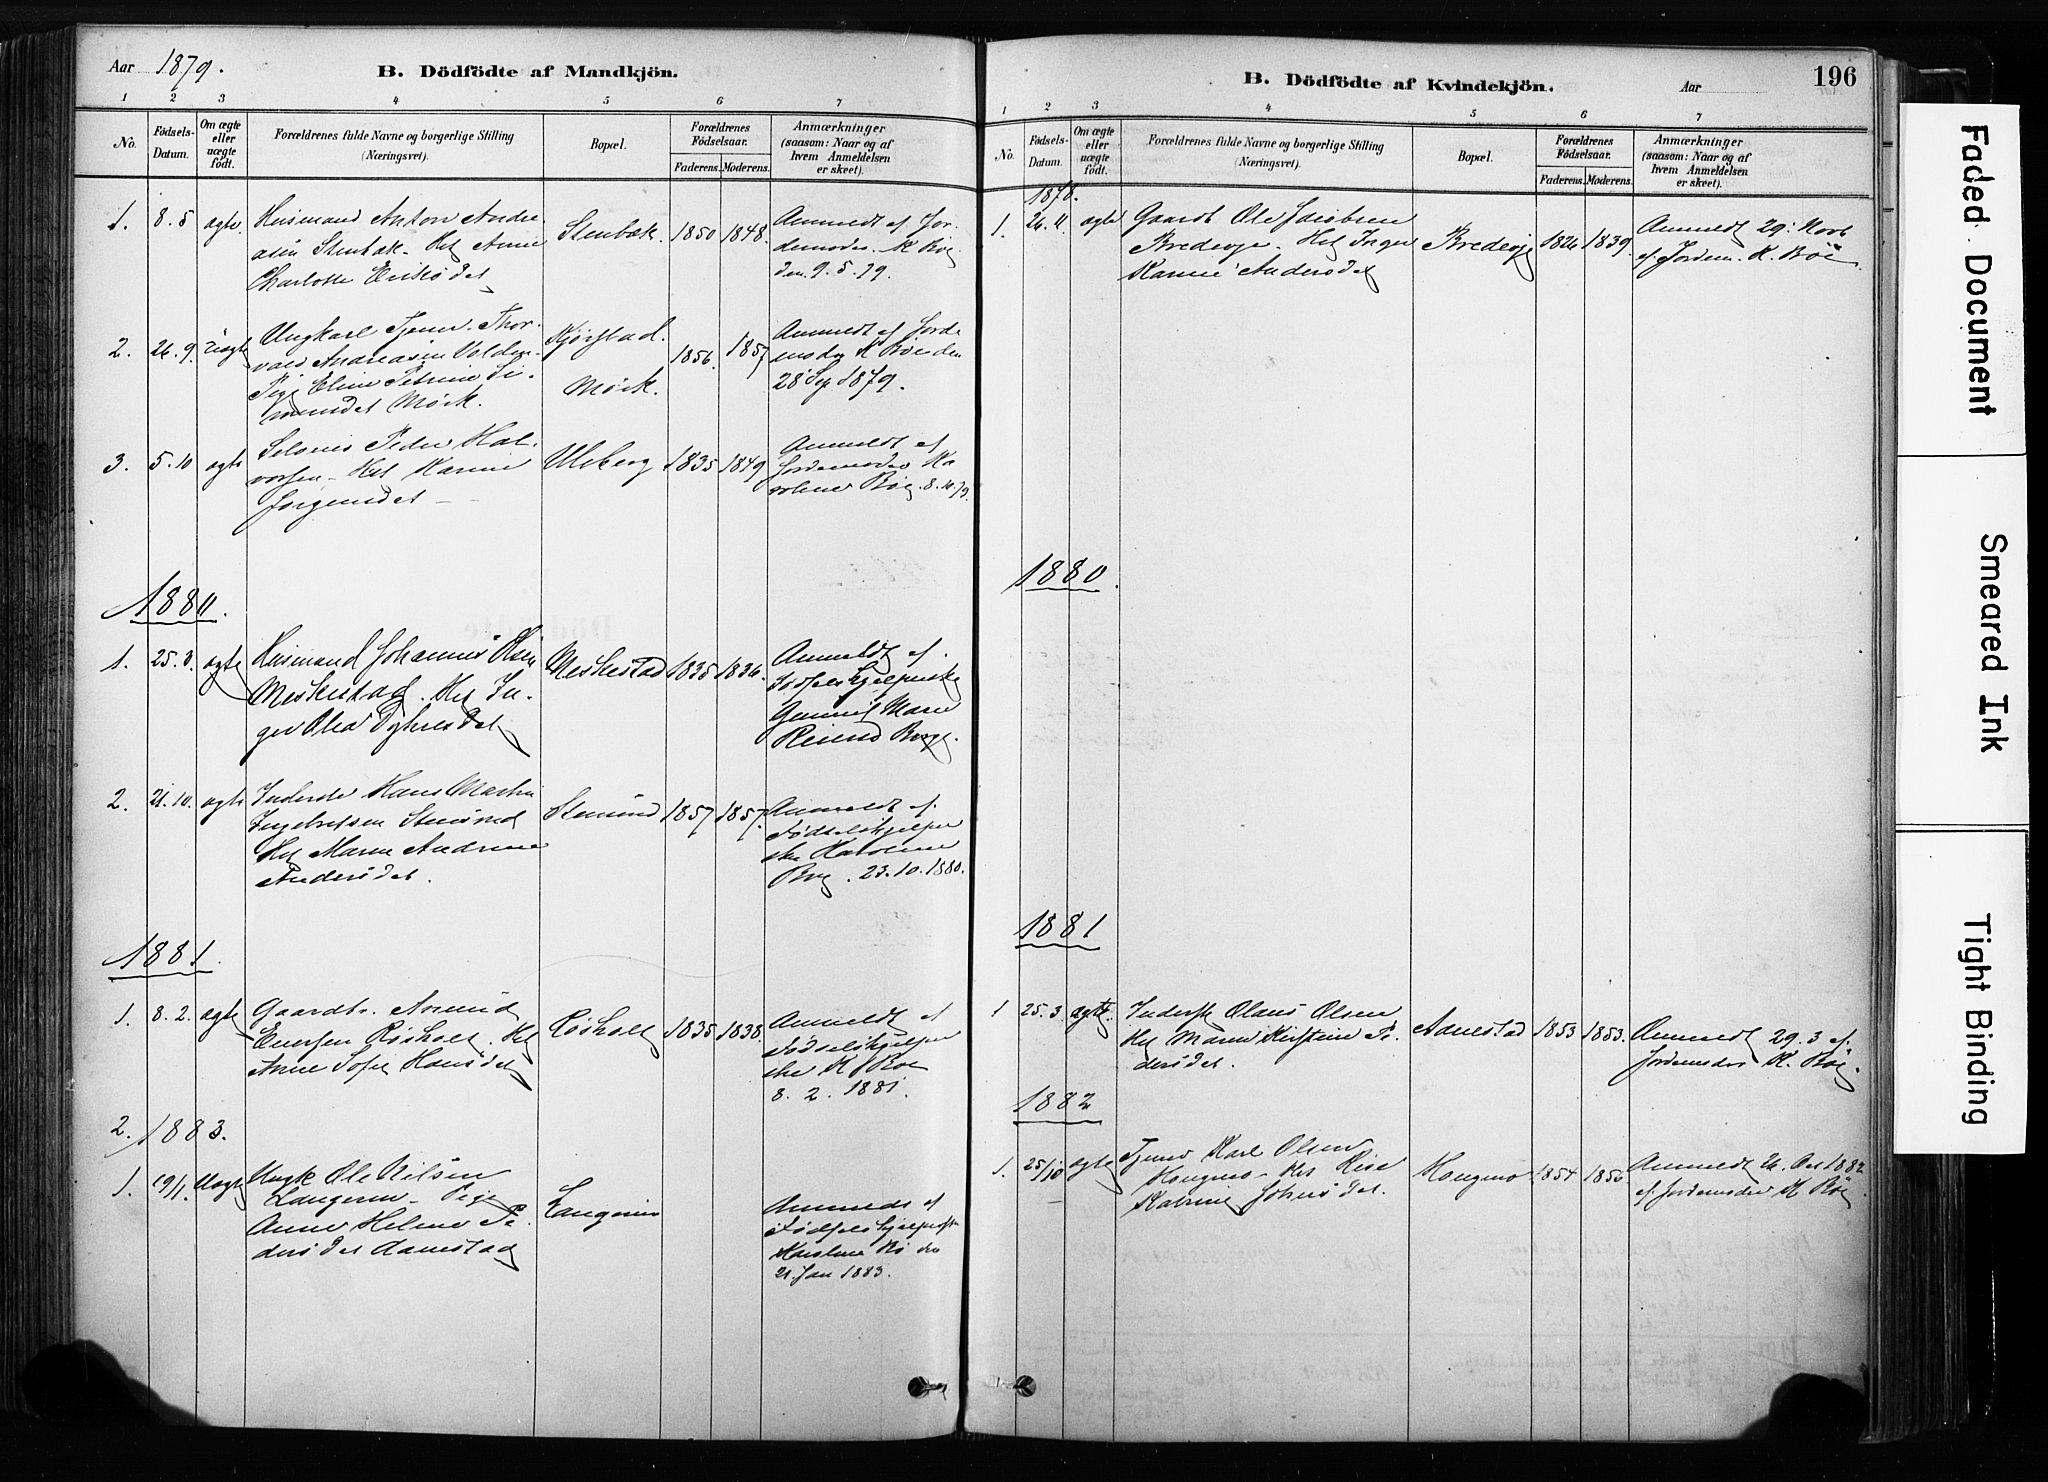 Aar 1879.
B. Dödfödte af Mandkjön.
1 2 3 4 5 6 7
No.
Födsels-
Datum.
Om ægte
eller
uægte
födt.
Forældrenes fulde Navne og borgerlige Stilling
(Næringsvei).
Bopæl.
Forældrenes
Födselsaar.
Faderens. Moderens.
Anmærkninger
(saasom: Naar og af
hvem Anmeldelsen
er skeet).
1. 8. 5 ægte Husmand Anton Andre
asen Stenbæk. Hst Anne
Charlotte Eriksdet
Stenbæk. 1850 1848.
Anmeldt af Jor
demoder K Bøe
den 9. 5. 79.
2. 26. 9. uægte Ungkarl Tjener Thor
vald Andreasen Volden
Pige Eline Petrine Si-
monsdet Mörk.
Kjörstad.
Mörk.
1856. 1857
Anmeldt af Jorde
moder K Böe den
28 Sep 1879.
3. 5. 10 ægte Peder Hal
vorsen. Hst Karine
Jörgensdet
Uleberg 1835 1849
Anmeldt af
Jordemoder Ka
roline Böe. 8. 10. 79.
1880.
1. 25. 3. ægte Husmand Johannes Olsen
Meskestad. Hst In-
ger Olea
Meskestad 1835 1836.
Anmeldt af
Födselshjelperske
Gunnil Marie
2. 21. 10. ægte Inderste Hans Martin
Ingebretsen
Hst Maren Andrine
Andersdet.
1857 1857.
Anmeldt af
Födselshjelper
ske Karoline
Böe. 23. 10. 1880.
1881.
1. 8. 2. ægte Gaardbr. Amund
Evensen Rösholt. Hst
Anne Sofie Hansdet
Rösholt 1835 1838.
Anmeldt af
Födselshjelper
ske K Böe
8. 2. 1881.
2. 1883.
1. 19/1. Uægte Ungk Ole Nilsen
Langerin Pige
Anne Helene Pe
dersdet Aamestad
Langerin
Anmeldt af
Födselshjelperske
Karoline Bö den
21. Jan 1883.
B. Dödfödte af Kvindekjön.
Aar
196
1 2 3 4 5 6 7
No.
Födsels-
Datum.
Om ægte
eller
uægte
födt.
Forældrenes fulde Navne og borgerlige Stilling
(Næringsvei).
Bopæl.
Forældrenes
Födselsaar.
Faderens. Moderens.
Anmærkninger
(saasom: Naar og af
hvem Anmeldelsen
er skeet).
1878.
1. 26. 11. ægte Gaardb Ole Jacobsen
Bredevje. Hst Inger
Karine Andersdet
Bredevje 1826 1839.
Anmeldt 29. Novb
af Jordem. K. Böe
1880.
1881
1 25. 3. ægte Inderst Olaus Olsen
Hst Maren Kirstine Pe
dersdet.
Adnestad 1853 1853.
Anmeldt 29. 3 af
Jordemoder K. Böe.
1882
1. 25/10 ægte Tjener Karl Olsen
Hougmo. Hst Lise
Katrine Johnsdet.
Hougmo 1854 1856
Anmeldt 26. Oct 1882
af Jordemoder K Böe
Faded Document
Smeared Ink
Tight Binding